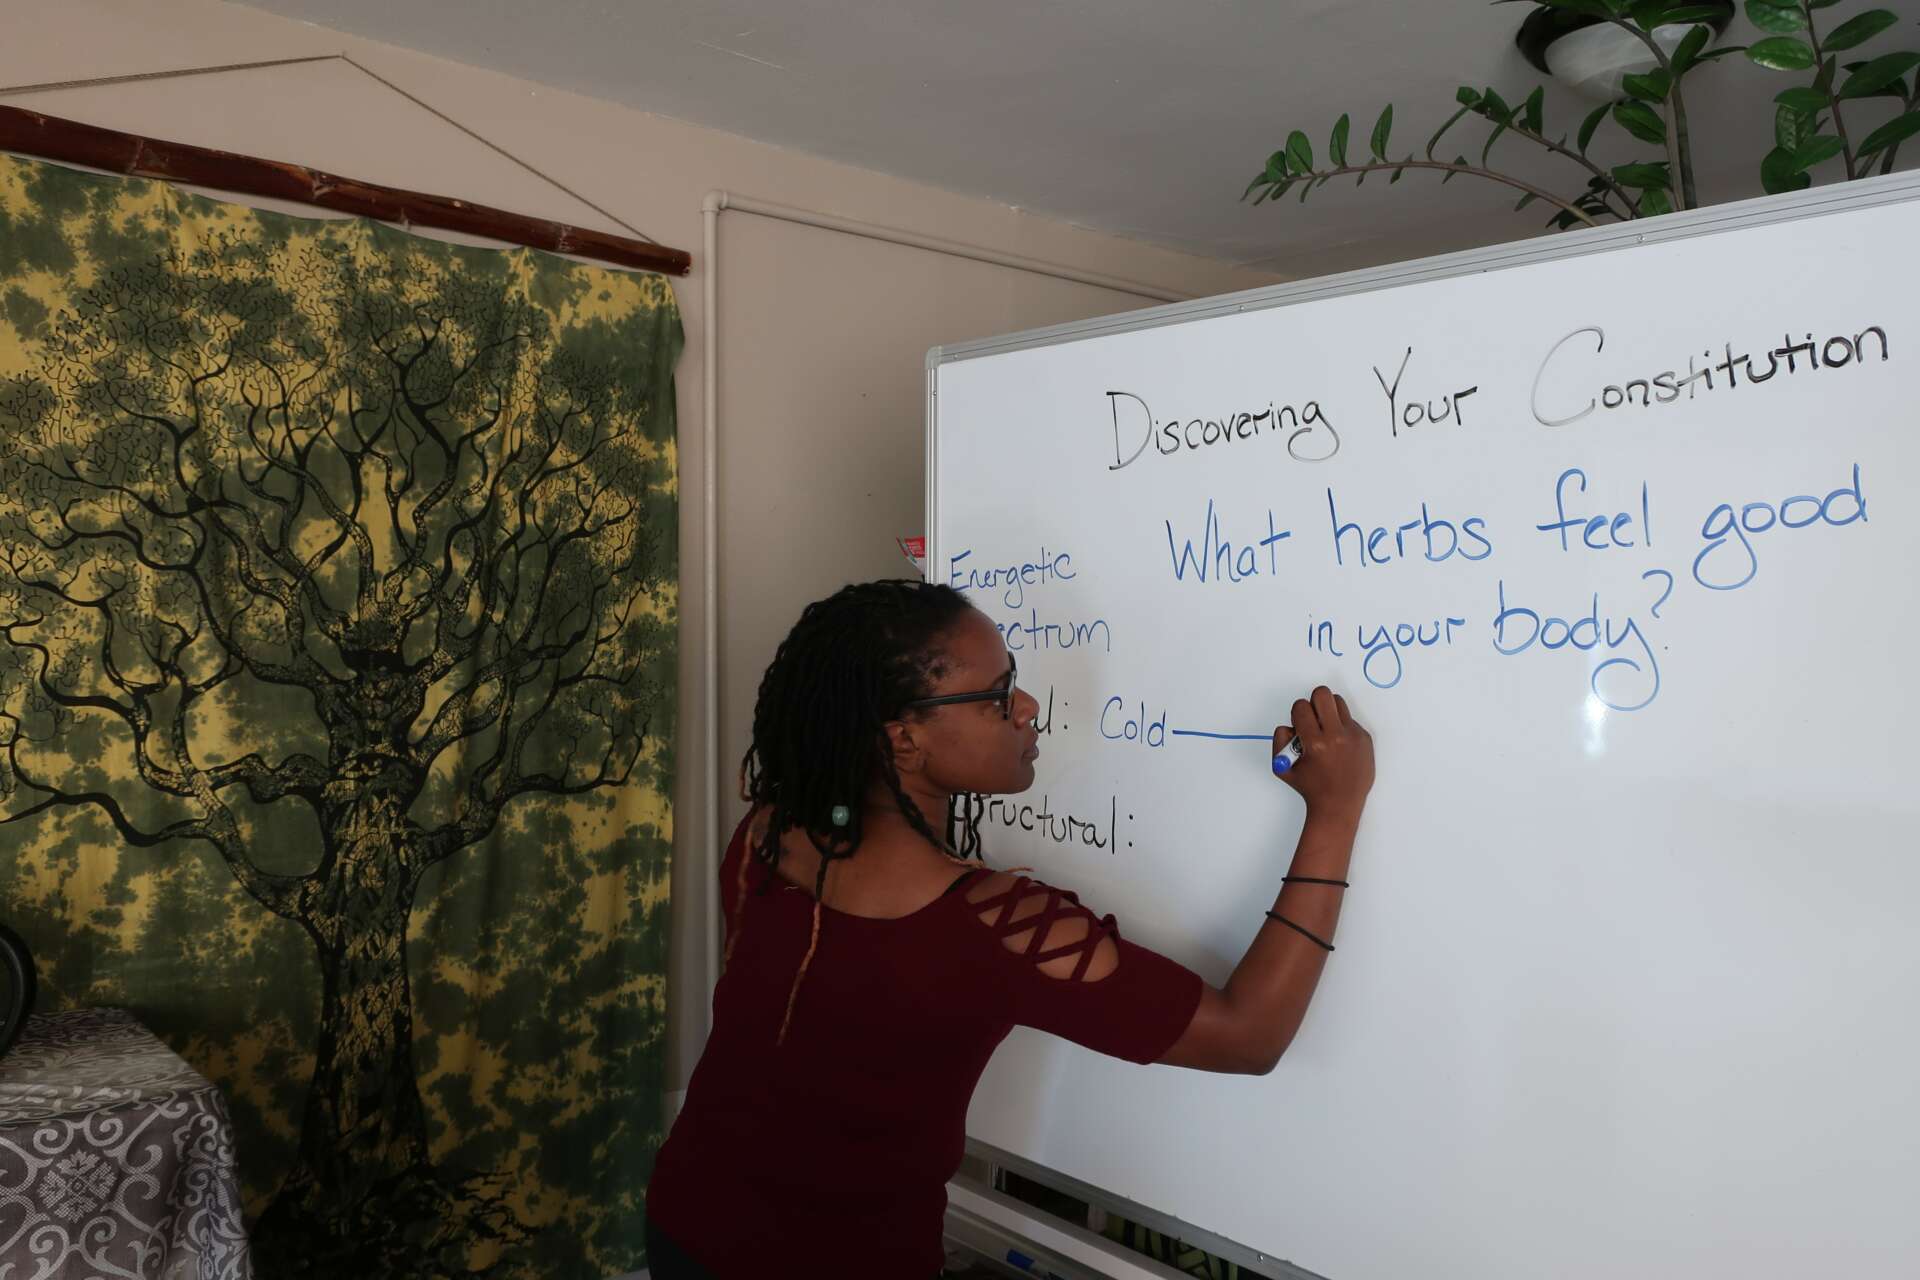 Discovering Your Constitution
What herbs feel good
in your body?
Energetic
Cold